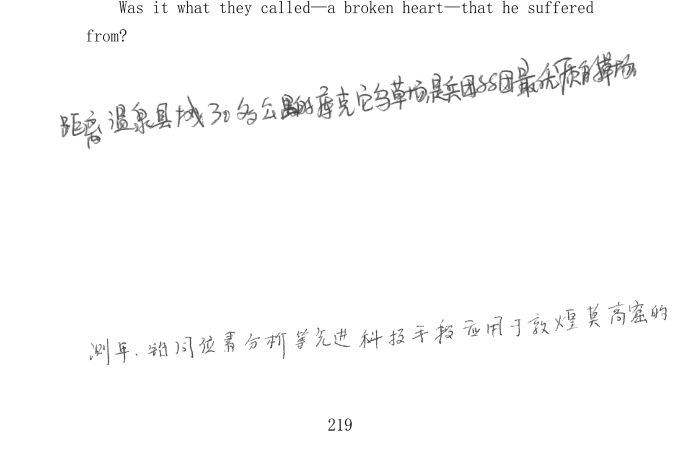 Was it what they called—a broken heart—that he suffered
from?
距离温泉县城30多公里的库克它乌草场是兵团88团最优质的草场
测年、铅同位素分析等先进科技手段应用于敦煌莫高窟的
219